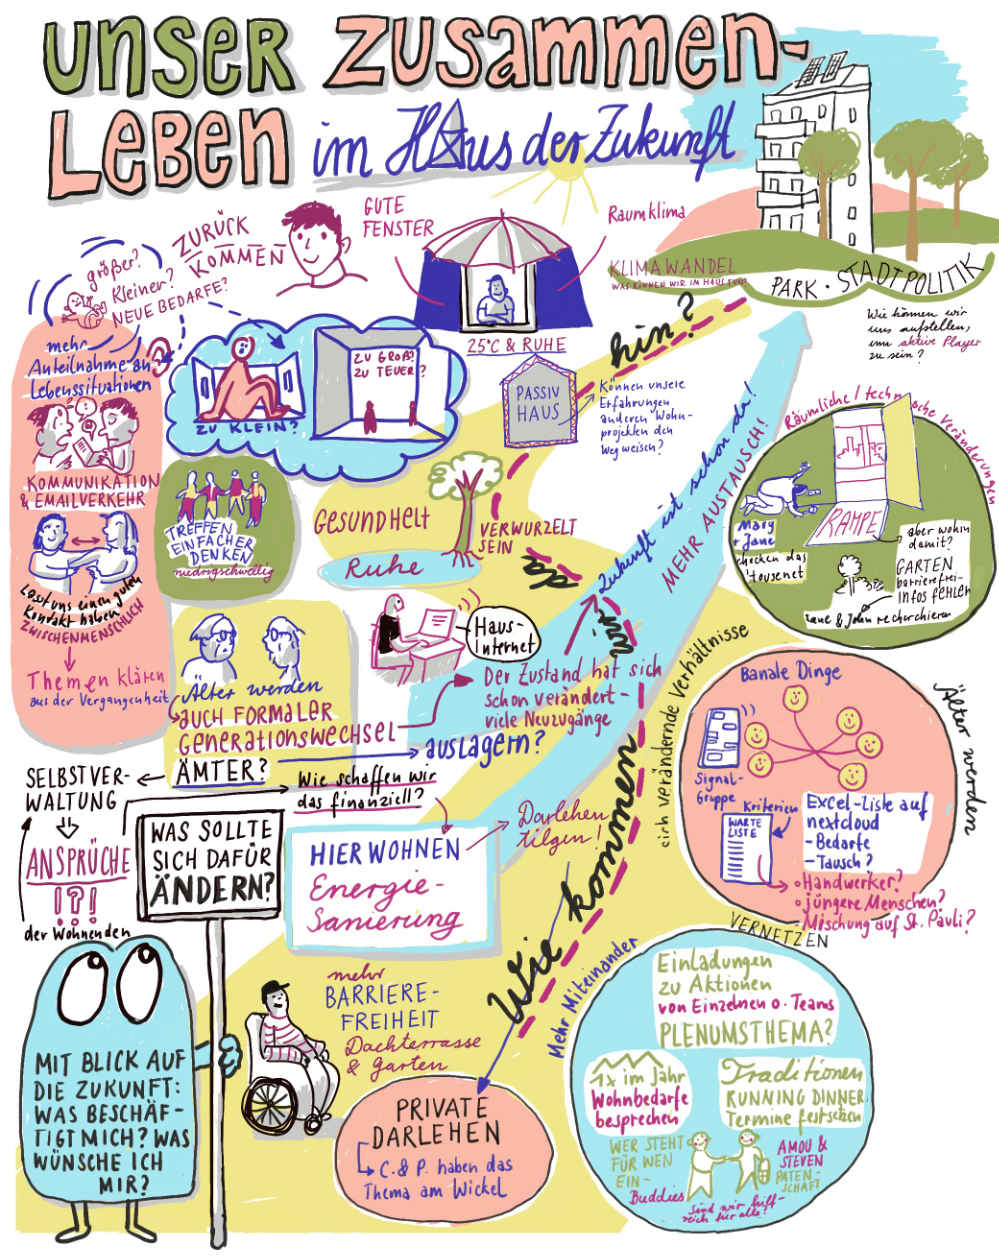 UNSER ZUSAMMEN-
LEBEN im Haus der Zukunft
ZURÜCK
KOMMEN
GUTE
FENSTER
Raumklima
KLIMAWANDEL
WAS KÖNNEN WIR IM HAUS TUN?
PARK · STADTPOLITIK
Wie können wir
uns aufstellen,
um aktive Player
zu sein?
größer?
Kleiner?
NEUE BEDARFE?
mehr
Anteilnahme an
Lebenssituationen
KOMMUNIKATION
& EMAILVERKEHR
Lasst uns einen guten
Kontakt haben
ZWISCHENMENSCHLICH
Themen klären
aus der Vergangenheit
ZU KLEIN?
ZU GROß?
ZU TEUER?
25°C & RUHE
PASSIV
HAUS
hin?
Können unsere
Erfahrungen
anderen Wohn-
projekten den
Weg weisen?
TREFFEN
EINFACHER
DENKEN
niedrigschwellig
GESUNDHEIT
Ruhe
VERWURZELT
SEIN
da
Zukunft ist schon da!
MEHR AUSTAUSCH!
Räumliche / technische Veränderungen
RAMPE
Mary
+ Jane
checken das
Housenet
aber wohin
damit?
GARTEN
barrierefrei-
INFOS FEHLEN
Jane & John recherchieren
Haus-
Internet
Älter werden
AUCH FORMALER
Generationswechsel
ÄMTER?
auslagern?
Der Zustand hat sich
schon verändert -
viele Neuzugänge
wir
sich verändernde Verhältnisse
Banale Dinge
Signal-
Gruppe
Kriterien
WARTE
LISTE
Excel-Liste auf
nextcloud
- Bedarfe
- Tausch?
Handwerker?
jüngere Menschen?
Mischung auf St. Pauli?
Älter werden
SELBSTVER-
WALTUNG
ANSPRÜCHE
!?!
der Wohnenden
Wie schaffen wir
das finanziell?
WAS SOLLTE
SICH DAFÜR
ÄNDERN?
HIER WOHNEN
Energie-
Sanierung
Darlehen
tilgen!
Wie kommen
Mehr Miteinander
VERNETZEN
Einladungen
zu Aktionen
von Einzelnen o. Teams
PLENUMSTHEMA?
1x im Jahr
Wohnbedarfe
besprechen
Traditionen
RUNNING DINNER
Termine festsetzen
WER STEHT
FÜR WEN
EIN-
Buddies
AMOU &
STEVEN
PATEN-
SCHAFT
Sind wir hilf-
reich für alle?
mehr
BARRIERE-
FREIHEIT
Dachterrasse
& Garten
PRIVATE
DARLEHEN
C. & P. haben das
Thema am Wickel
MIT BLICK AUF
DIE ZUKUNFT:
WAS BESCHÄF-
TIGT MICH? WAS
WÜNSCHE ICH
MIR?